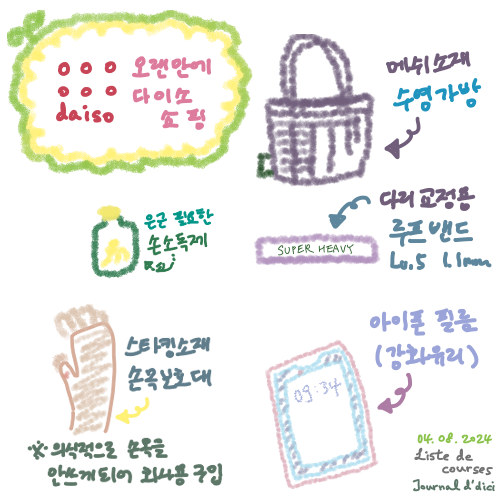 daiso
오랜만에
다이소
쇼핑
메쉬소재
수영가방
은근 필요한
손소독제
다리 교정용
루프밴드
SUPER HEAVY
Lv.5 1.1mm
스타킹소재
손목보호대
※ 의식적으로 손목을
안쓰게되어 회사용 구입
아이폰 필름
(강화유리)
09:34
04.08.2024
Liste de
courses
Journal d'dici